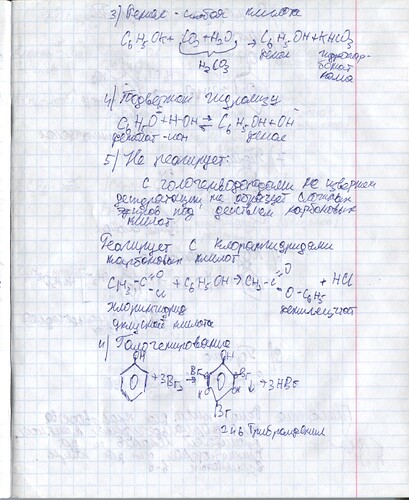 3) Фенол - слабая кислота
C₆H₅OK + CO₂ + H₂O → C₆H₅-OH + KHCO₃
фенол гидрокар-
H₂CO₃ бонат
4) Подвержен гидролизу
C₆H₅O⁻ + H-OH ⇌ C₆H₅OH + OH⁻
фенолят-ион фенол
5) Не реагирует:
С галогеноводородами не
не образует сложных
эфиров под действием карбоновых
кислот.
Реагирует с хлорангидридами
карбоновых кислот
CH₃-C=O + C₆H₅OH → CH₃-C=O + HCl
Cl O-C₆H₅
хлорангидрид
уксусной кислоты
Галогенирование
OH OH
+3Br₂ → Br Br ↓ +3HBr
Br
246 Трибромфенол